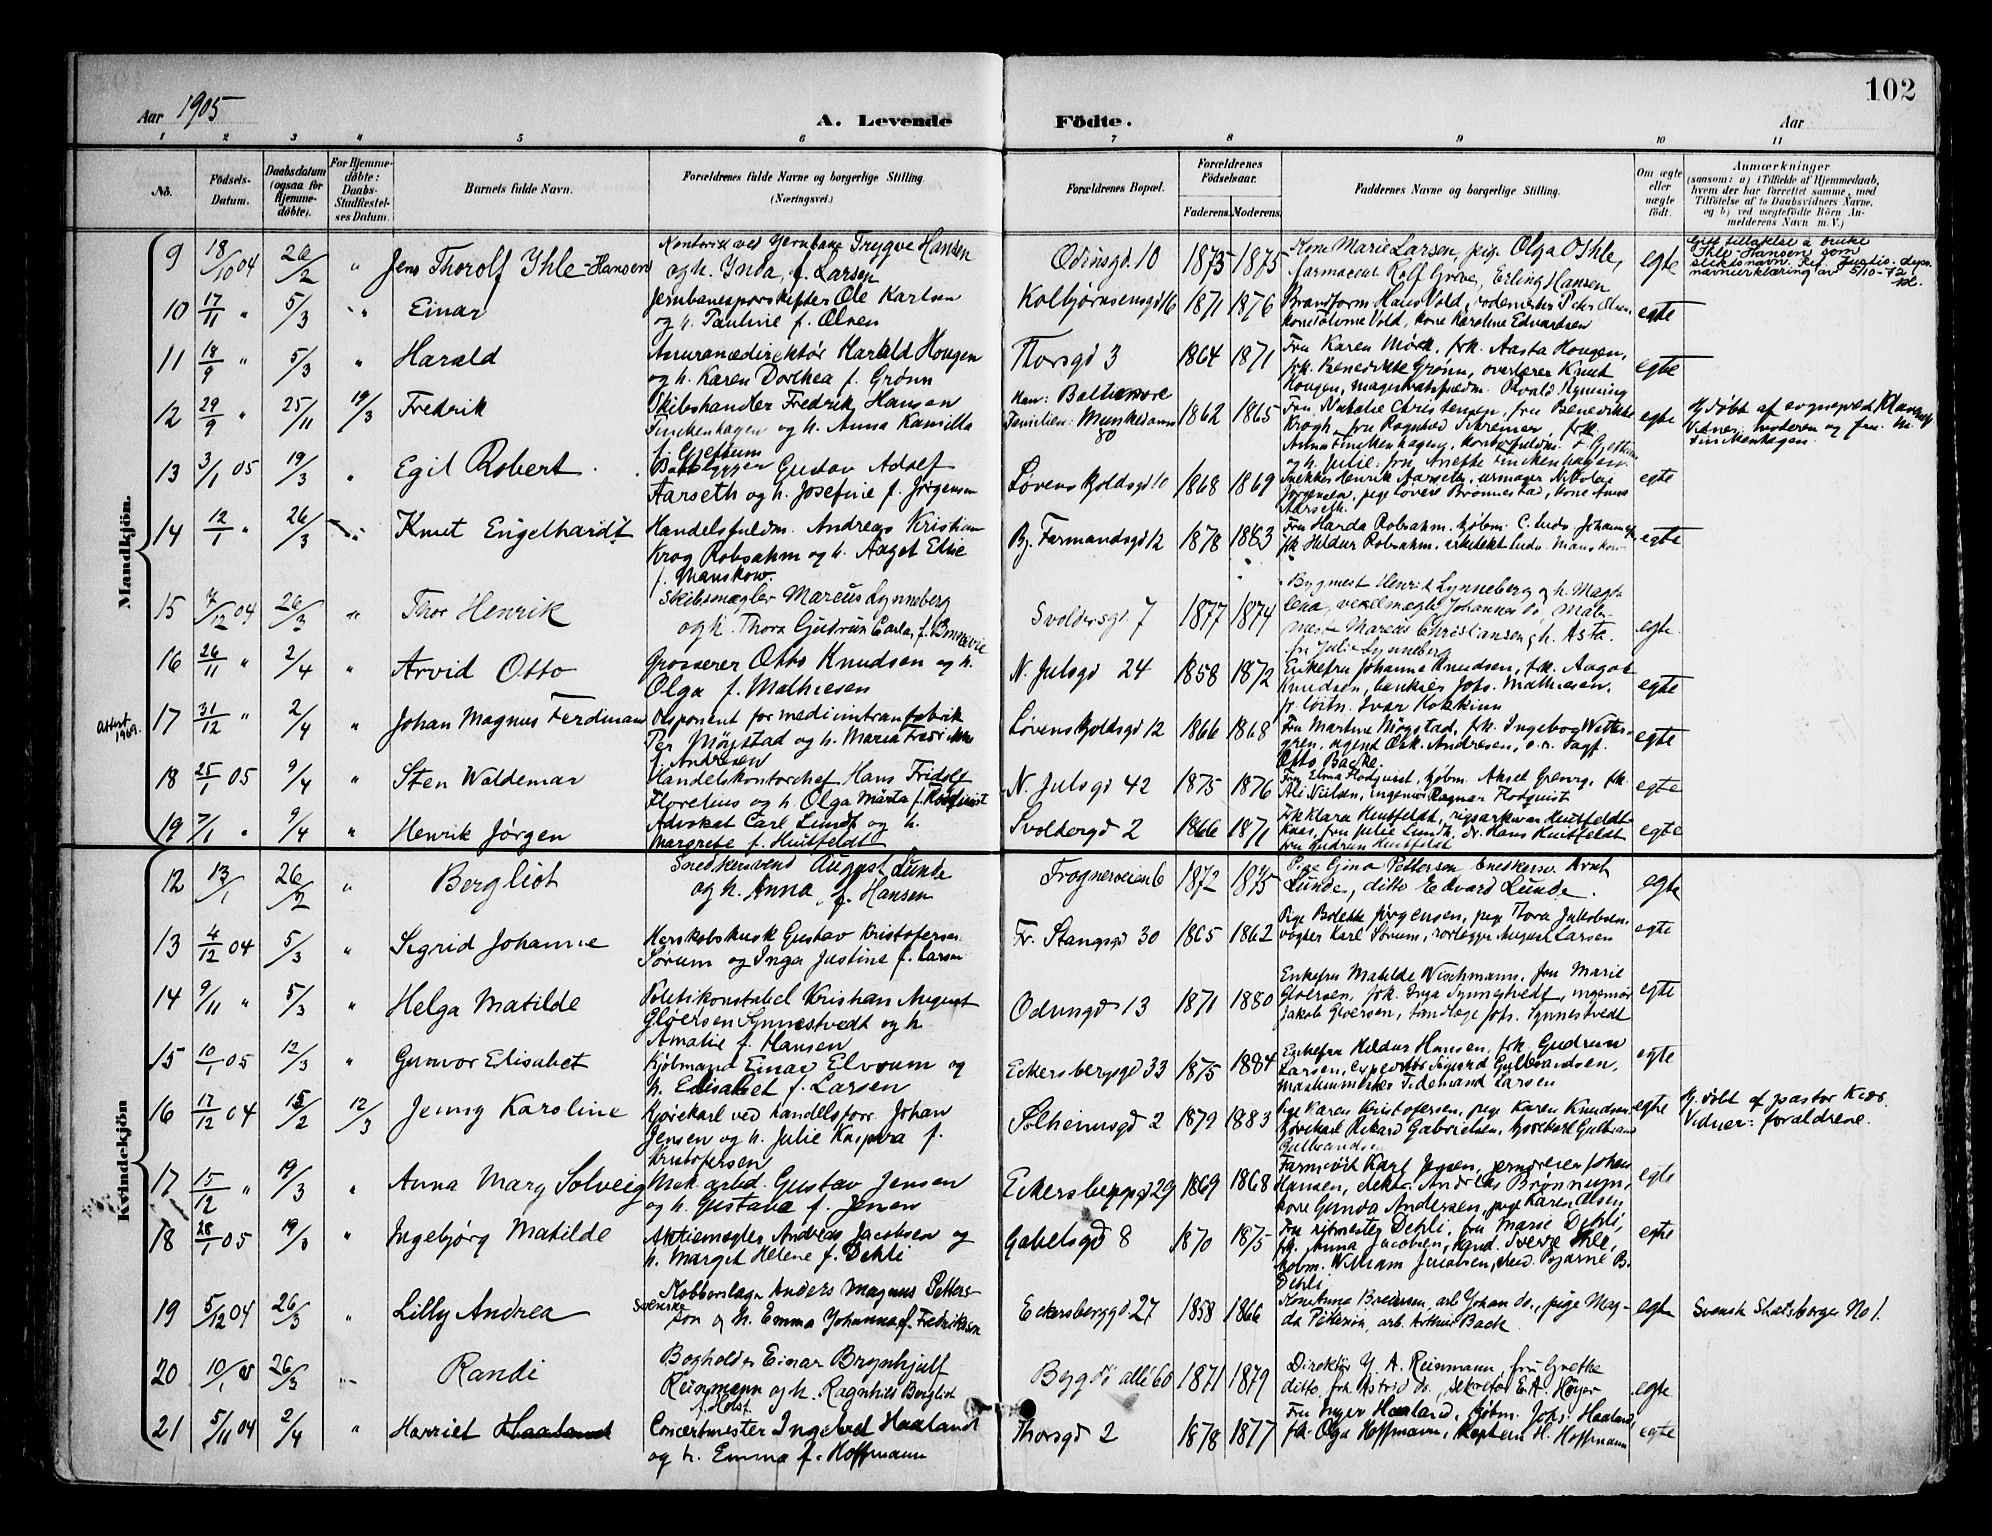 102
Aar 1905
A. Levende
Fødte.
Aar
1 2 3 " 5 6 7 8 9 10 11
No.
Fødsels-Datum.
Daabsdatum (ogsaa for Hjemme-døbte).
For Hjemme-døbte: Daabs-Stadfæstel-ses Datum.
Barnets fulde Navn.
Forældrenes fulde Navne og borgerlige Stilling.
(Næringsvei.)
Forældrenes Bopæl.
Forældrenes Fødselsaar.
Faderens. Moderens.
Faddernes Navne og borgerlige Stilling.
Om ægte eller uægte født.
Anmærkninger
(saasom: a) i Tilfælde af Hjemmedaab, hvem der har forrettet samme, med Tilføielse af to Daabsvidners Navne, og b) ved uægtefødte Børn An-melderens Navn m. V.)
Mandkjön.
9 18/10 04 26/2 " Jens Thorolf Ihle-Hansen
Kontorist ved Jernbane Trygve Hansen
og h. Ynda, f. Larsen
Odinsgd. 10 1873 1875
Kone Marie Larsen, pige Olga Ihle,
farmaceut Rolf Grove, Erling Hansen
egte
Gitt tillatelse å bruke
Ihle-Hansen som
slektsnavn.
navneerklæring av 5/10-72
10 17/11 " 5/3 " Einar
Jernbanesporskifter Ole Karlsen
og h. Pauline f. Olsen
Kolbjørnsensgd 16 1871 1876
Brandform. Hans Vold, rodemester Peter Olsen,
kone Vold, kone Karoline Edvardsen
egte
11 18/9 " 5/3 " Harald
Assurancedirektør Harald Hougen
og h. Karen Dorthea f. Grønn
Thorsgd 3 1864 1871
Fru Karen Mørk, frk. Aasta Hougen,
frk. Benedikte Grønn, overlærer Knut
Hougen, magistratsfuldm.
egte
12 29/9 " 25/11 19/3 Fredrik
Skibshandler Fredrik Hansen
Finckenhagen og h. Anna Kamilla
f. Gjethum
Han: Baltimore
Familien: Munkedams 80 1862 1865
Fru Natalie Christensen, fru Benedikte
Krogh, fru Ragnhild Schreiner, frk.
Anna Finckenhagen, kontorfuldm. F. Gjethum
og h. Julie, fru Anette Finckenhagen.
egte
Hj.døbt af sogneprest Klaveness
Vidner: moderen og fru M.
Finckenhagen.
13 3/1 05 19/3 " Egil Robert
Baatbygger Gustav Adolf
Aarseth og h. Josefine f. Jørgensen
Løvenskjoldsgd 10 1868 1869
Snekker Henrik Aarseth, urmager Nikolai
Jørgensen, pige Lovere Brønnestad, kone Anna
Aarseth.
egte
14 12/1 " 26/3 " Knut Engelhardt
Handelsfuldm. Andreas Kristian
Krog Robsahm og h. Aagot Elise
f. Manskow.
By. Farmandsgd 12 1878 1883
Fru Harda Robsahm, kjøbm. C. Ludv. Johannsen,
frk. Hildur Robsahm, arkitekt Ludv. Manskow
egte
15 7/12 04 26/3 " Thor Henrik
Skibsmægler Marcus Lynneberg
og h. Thora Gudrun Carla, f.
Svoldersgd. 7 1877 1874
Bygmest. Henrik Lynneberg og h. Magda
lena, Johannes do, Maler
mester Marcus Christiansen, h. Asta.
fru Julie Lynneberg
egte
16 26/11 " 2/4 " Arvid Otto
Grosserer Otto Knudsen og h.
Olga f. Mathiesen
N. Julsgd 24 1858 1872
Enkefru Johanne Knudsen, frk. Aagot
Knudsen, bankier Johs. Mathiesen,
pr. løitn. Ivar Kokkinn
egte
Attest 1969.
17 31/12 " 2/4 " Johan Magnus Ferdinand
Disponent for medicintranfabrik
Per Møgstad og h. Maria Fredrikke
f. Andresen
Løvenskjoldsgd 12 1866 1868
Fru Martine Møgstad, frk. Ingeborg Witter-
gren, agent Osk. Andresen, o.r. sagf.
Otto Backe.
egte
18 25/1 05 9/4 " Sten Waldemar
Handelskontorchef Hans Fridolf
Florelius og h. Olga Märta f. Flodquist
N. Julsgd 42 1875 1876
Fru Elma Flodquist, kjøbm. Aksel Georg, frk.
Ali Nielsen, ingeniør Ragnar Flodquist
egte
19 7/1 " 9/4 " Henrik Jørgen
Advokat Carl Lundh og h.
Margrete f. Huitfeldt
Svoldergd 2 1866 1871
Frk Klara Huitfeldt, rigsarkivar Huitfeldt-
Kaas, fru Julie Lundh, dr. Hans Huitfeldt
fru Gudrun Huitfeldt
egte
Kvindekjön
12 13/1 26/2 " Bergliot
Snedkersvend August Lunde
og h. Anna, f. Hansen
Frognerveien 6 1872 1875
Pige Gina Pettersen, snedkersv. Arnt
Lunde, ditto Edvard Lunde.
egte
13 4/12 04 5/3 " Sigrid Johanne
Herskabskusk Gustav Kristofersen
Sørum og Inga Justine f. Larsen
Fr. Stangsgd 30 1865 1862
Pige Bolette Jørgensen, pige Thora Jakobsen,
vogter Karl Sørum, rørlegger August Larsen
egte
14 9/11 " 5/3 " Helga Matilde
Politikonstabel Kristian August
Gløersen Synnestvedt og h.
Amalie f. Hansen
Odinsgd 13 1871 1880
Enkefru Matilde Wischmann, fru Marie
Gløersen, frk. Inga Synnestvedt, ingeniør
Jakob Gløersen, tandlæge Johs. Synnestvedt
egte
15 10/1 05 12/3 " Gunvor Elisabet
Kjøbmand Einar Elvrum og
h. Elisabet f. Larsen
Eckersberggd 33 1875 1884
Enkefru Hildur Hansen, frk. Gudrun
Larsen, expeditør Sigurd Gulbrandsen,
maskinmester Tidemand Larsen
egte
16 17/12 04 15/2 12/3 Jenny Karoline
Kjørekarl ved handelsforr. Johan
Jensen og h. Julie Kaspara f.
Kristofersen
Solheimsgd 2 1879 1883
Pige Karen Kristofersen, pige Karen Knudsen,
kjørekarl Rikard Gabrielsen, kjørekarl Gulbrand
Gulbrandsen
egte
Hj. døbt af pastor Kiær.
Vidner: forældrene.
17 15/12 " 19/3 " Anna Mary Solveig
Mek. arbd. Gustav Jensen
og h. Gustava f. Jensen
Eckersberggd 29 1869 1868
Karl Jensen, jerndreier Johan
Hansen, Andreas Brønnum,
kone Gunda Andersen, pige Karen Olsen,
egte
18 28/1 05 19/3 " Ingebjørg Matilde
Aktiemægler Andreas Jacobsen og
h. Margit Helene f. Dehli
Gabelsgd 8 1870 1875
Fru ritmester Dehli, fru Marie Dehli,
frk. Anna Jacobsen, kand. Sverre Ihle,
kjøbm. William Jacobsen, stud. Bjarne B.
Dehli.
egte
19 5/12 04 26/3 " Lilly Andrea
Kobberslager Anders Magnus Petters-
Svenske
son og h. Emma Johanna f. Fredrikson
Eckersberggd 27 1858 1866
Kone Anna Bredesen, arb. Johan do., pige Mag-
da Petterson, arb. Arthur Back.
egte
Svensk Statsborger No 1.
20 10/1 05 26/3 " Randi
Bogholder Einar Brynhjulf
Reinmann og h. Ragnhild Bergliot
f. Holst.
Bygdø allé 60 1871 1879
Direktør Y. A. Reinmann, fru Grethe
ditto, frk Astrid do., sekretær E. A. Høyer
egte
21 5/11 04 2/4 " Harriet Haaland
Concertmester Ingevald Haaland
og h. Emma f. Hoffmann
Thorsgd 2 1878 1877
Fru Inger Haaland, kjøbm. Johs. Haaland,
frk. Olga Hoffmann, kaptein H. Hoffmann
egte